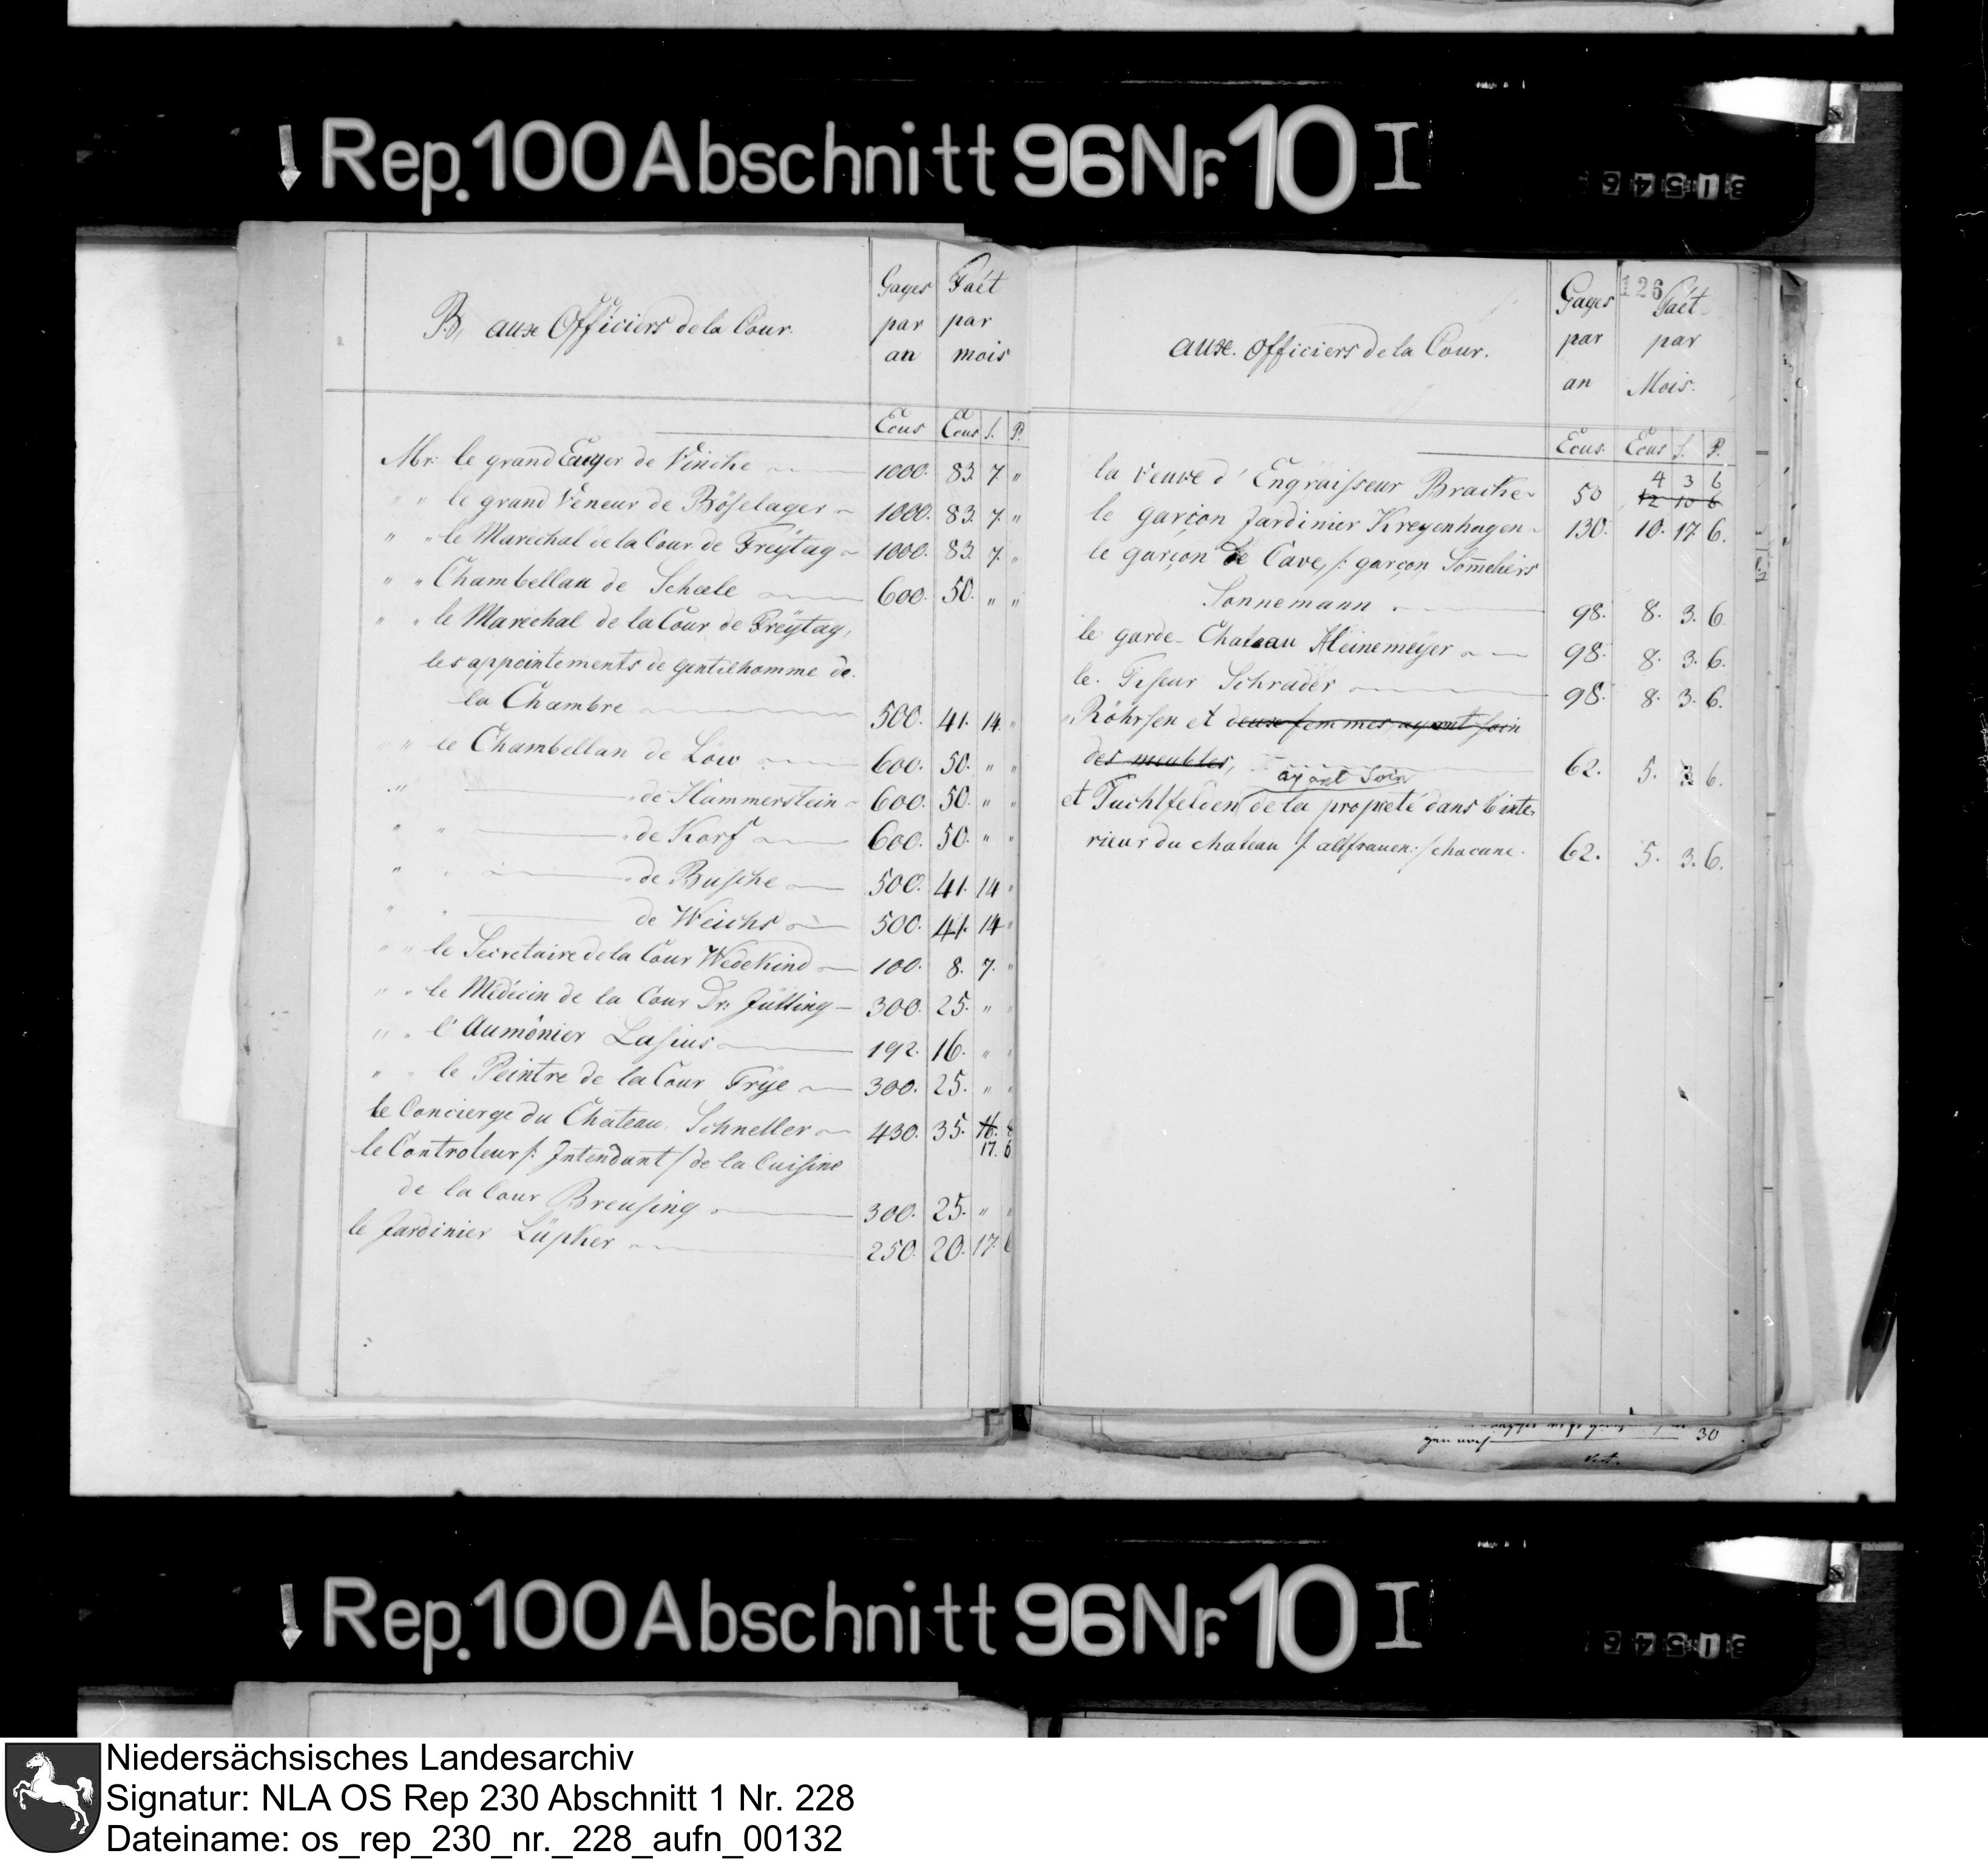 Rep. 100 Abschnitt 96 Nr. 10 I
B, aux Officiers de la Cour.
Gages par an
Fait par mois
Ecus
Ecus s. P.
Mr. le grand Ecuyer de Vincke 1000. 83. 7. "
" " le grand Veneur de Böselager 1000. 83. 7. "
" " le Marechal de la Cour de Freÿtag 1000. 83. 7. "
" " Chambellan de Scheele 600. 50. " "
" " le Marechal de la Cour de Freÿtag,
les appointements de gentilhomme de
la Chambre 500. 41. 14. "
" " le Chambellan de Löw 600. 50. " "
" — de Hammerstein 600. 50. " "
" " — de Korf 600. 50. " "
" " — de Busche 500. 41. 14 "
" " — de Weichs 500. 41. 14 "
" " le Secretaire de la Cour Wedekind 100. 8. 7. "
" " le Médecin de la Cour Dr. Jütting 300. 25. " "
" " l'Aumônier Lasius 192. 16. " "
" " le Peintre de la Cour Frÿe 300. 25. " "
le Concierge du Chateau Schneller 430. 35. 16.
17. 6
le Controleur /: Intendant / de la Cuisine
de la Cour Breusing 300. 25. " "
le Jardinier Lüpker 250. 20. 17. 6
126
aux Officiers de la Cour.
Gages par an
Fait par Mois.
Ecus.
Ecus s. P.
4 3 6
la Veuve d'Engraisseur Bracke 50 12 10 6
le garçon Jardinier Kreyenhagen 130. 10. 17 6.
le garçon de Cave, /: garçon Som̅eliers
Sonnemann 98. 8. 3. 6.
le garde-Chateau Kleinemeÿer 98. 8. 3. 6.
le Fiseur Schrader 98. 8. 3. 6.
Röhrsen et deux femmes ayant soin
des meubles, 62. 5. 3 6.
ayant soin
et Tuchtfelden de la propreté dans l'inte-
rieur du chateau /: altfrauen :/ chacune. 62. 5. 3. 6.
30
Rep. 100 Abschnitt 96 Nr. 10 I
Niedersächsisches Landesarchiv
Signatur: NLA OS Rep 230 Abschnitt 1 Nr. 228
Dateiname: os_rep_230_nr._228_aufn_00132